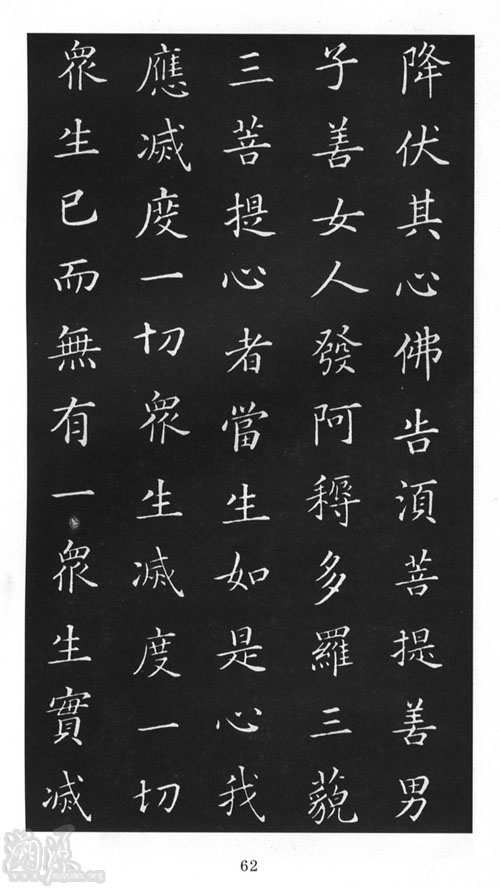 降伏其心佛告湏菩提善男
子善女人發阿耨多羅三藐
三菩提心者當生如是心我
應滅度一切眾生滅度一切
眾生已而無有一眾生實滅
62